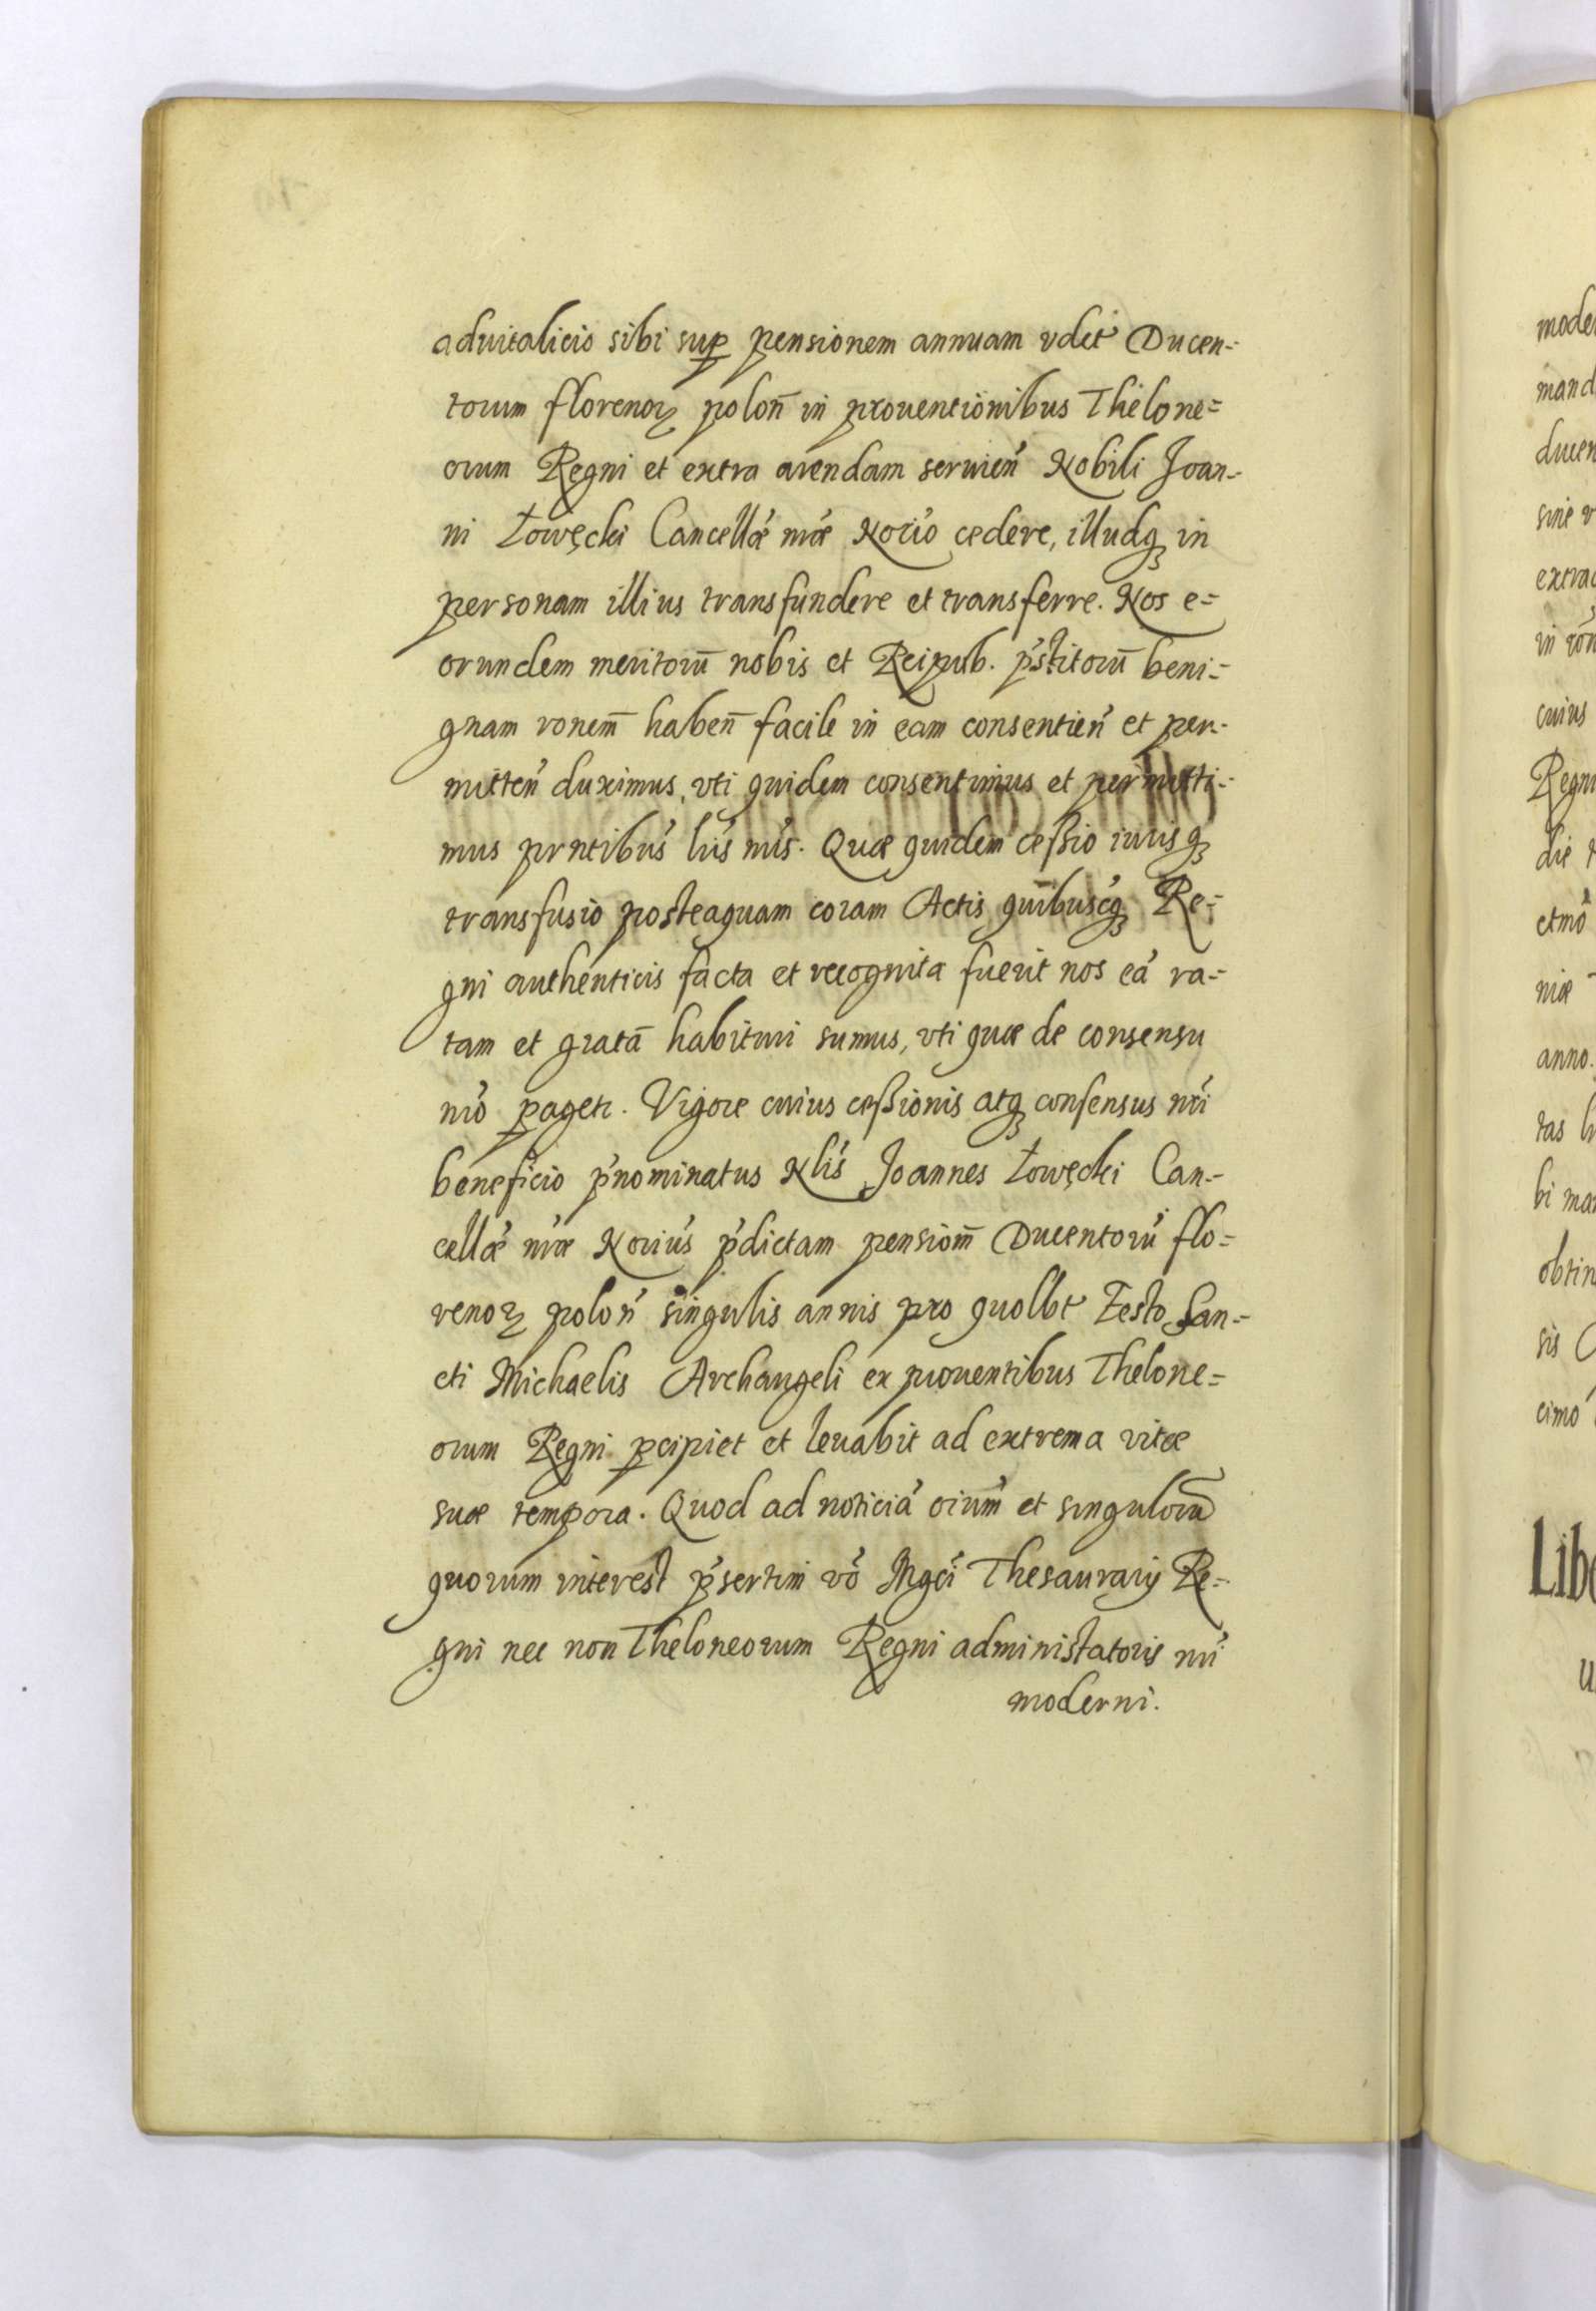 aduitalicio sibi sup̱ pensionem annuam vdet Ducen-
torum florenoꝝ polon̄ in prouentionibus Thelone=
orum Regni et extra arendam seruien̓ Nobili Joan-
ni Łowęcki Cancellæ̓ nr̓æ Norio̓ cedere, illudqꝫ in
personam illius transfundere et transferre. Nos e=
orundem meritorū nobis et Reipub. p̓stitorū beni-
gnam ronem̄ haben̄ facile in eam consentien̓ et per-
mitten̓ duximus, vti quidem consentimus et permitti-
mus prntibus̓ lris̓ nris̓. Quæ quidem ceßio iurisqꝫ
transfusio posteaquam coram Actis quibuscqꝫ Re-
gni authenticis facta et recognita fuerit nos ea̓ ra-
tam et gratā habituri sumus, vti quæ de consensu
nro̓ ꝑagetr. Vigore cuius ceßionis atqꝫ consensus nri̓
beneficio p̓nominatus Nlis̓ Joannes Łowęcki Can-
cellæ̓ nr̓æ Norius̓ p̓dictam pensiom̄ Ducentoru̓ flo=
renoꝝ polon̓ singulis annis pro quolbt Festo San-
cti Michaelis Archangeli ex prouentibus Thelone=
orum Regni ꝑcipiet et leuabit ad extrema vitæ
suæ tempora. Quod ad noticia̓ oium̓ et singulorū
quorum interest p̓sertim vo̓ Mgci̓ Thesaurarij Re-
gni nec non Theloneorum Regni administatoris nri̓
moderni.
mode
mand
ducen
sine
extra
in
cuius
Regni
die
etmo
niæ
anno.
tas
bi
obtin
sis
cimo
Libe